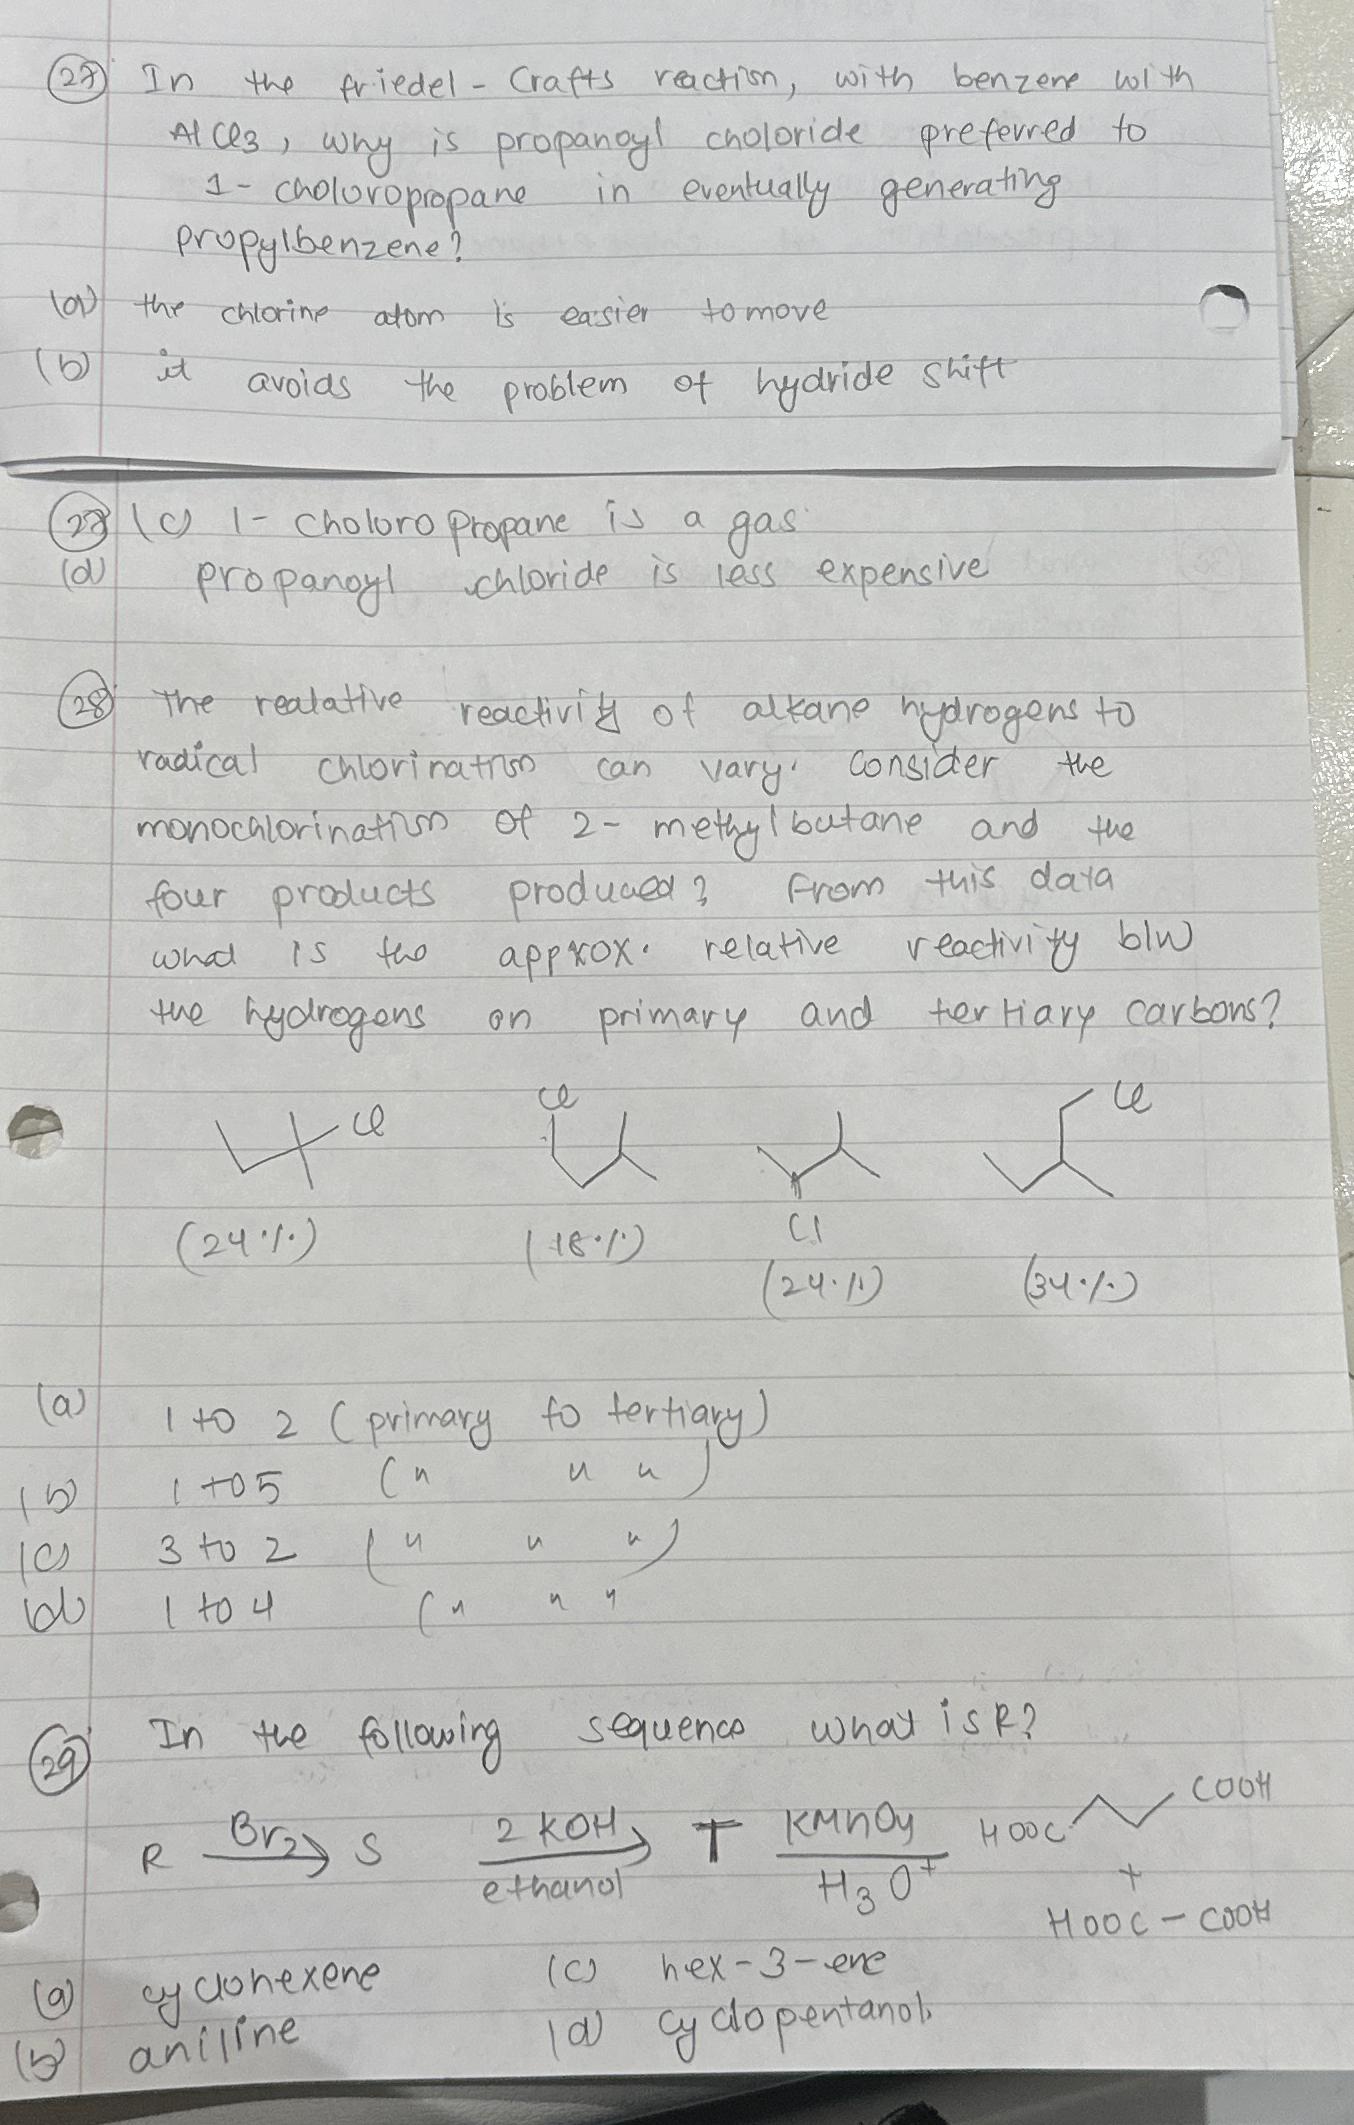 (27) In the friedel - Crafts reaction, with benzene with
AlCl3, why is propanoyl choloride preferred to
1 - choloropropane in eventually generating
propylbenzene?
(a) the chlorine atom is easier to move
(b) it avoids the problem of hydride shift
(27) (c) 1 - choloro propane is a gas
(d) propanoyl chloride is less expensive
(28) The realative reactivity of alkane hydrogens to
radical chlorination can vary. Consider the
monochlorination of 2 - methylbutane and the
four products produced? From this data
what is the approx. relative reactivity b/w
the hydrogens on primary and tertiary carbons?
Cl Cl Cl
Cl
(24%) (18%) (24%) (34%)
(a) 1 to 2 (primary to tertiary)
(b) 1 to 5 (" " ")
(c) 3 to 2 (" " ")
(d) 1 to 4 (" " "
(29) In the following sequence what is R?
R Br2 → S 2 KOH ethanol → T KMnO4 H3O+ HOOC COOH
+
HOOC - COOH
(a) cyclohexene (c) hex - 3 - ene
(b) aniline (d) cyclopentanol.